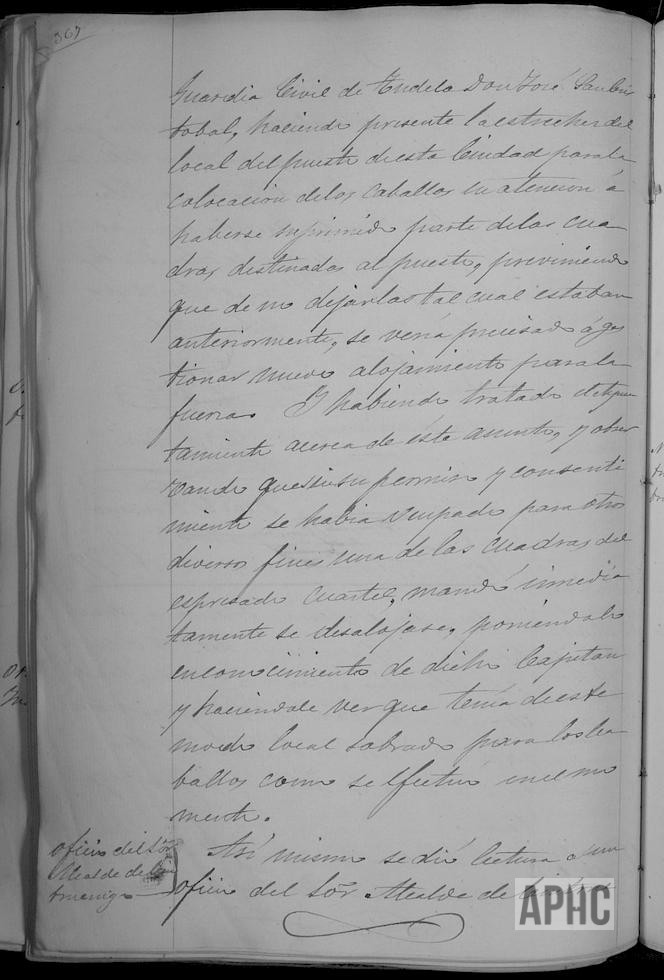 367
Guardia Civil de Tudela Don José San Cris
tobal, haciendo presente la estrechez del
local del puesto de esta Ciudad para la
colocacion de los caballos en atencion á
haberse suprimido parte de las cua
dras destinadas al puesto, previniendo
que de no dejarlas tal cual estaban
anteriormente, se veria precisado á ges
tionar nuevo alojamiento para la
fuerza. Y habiendo tratado el Ayun
tamiento acerca de este asunto, y obser
vando que sin su permiso y consenti
miento se habia ocupado para otros
diversos fines una de las cuadras del
espresado cuartel, mandó inmedia
tamente se desalojase, poniendolo
en conocimiento de dicho Capitan
y haciendole ver que tenia de este
modo local sobrado para los ca
ballos como se efectuó en el mo
mento.
oficio del Sôr
Alcalde de Cin
truenigo
Asi mismo se dió lectura a un
oficio del Sôr Alcalde de
APHC